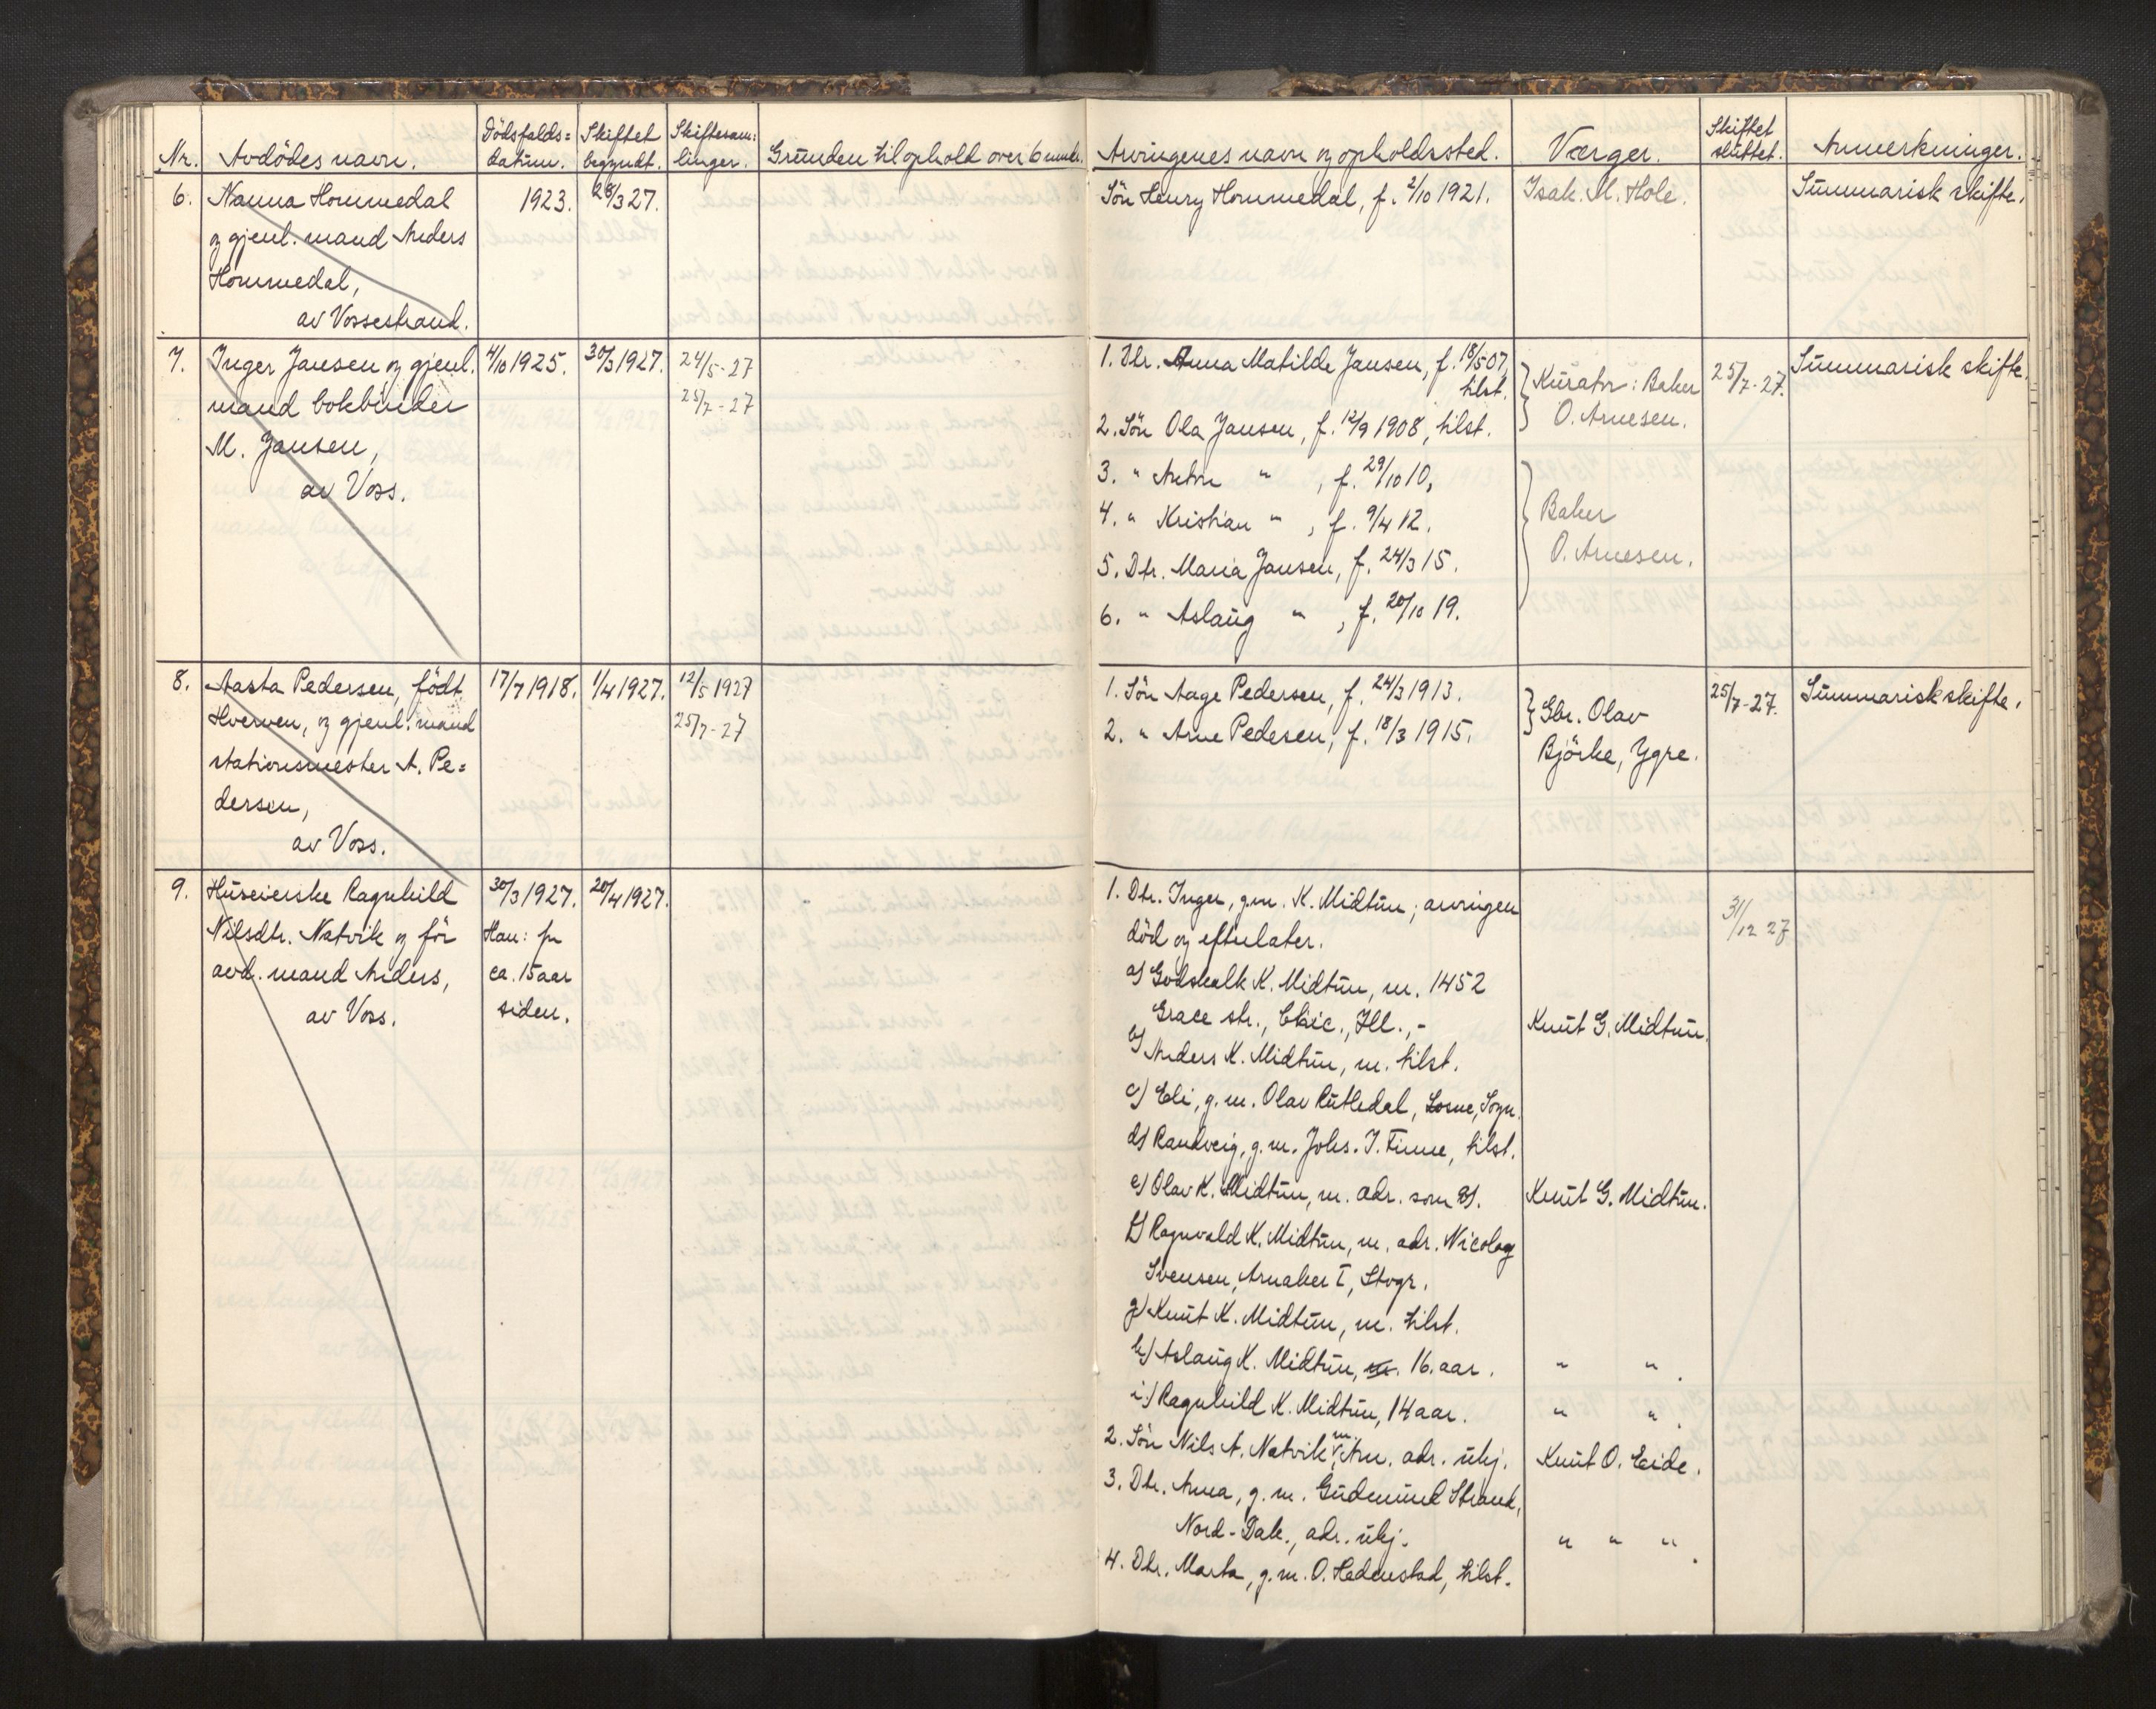 Nr. Avdödes navn. Dödsfalds= datum. Skiftet begyndt. Skiftesam: linger. Grunden til ophold over 6 mndr. Arvingenes navn og opholdssted. Værger. Skiftet sluttet. Anmerkninger.
6. Nanna Hommedal 1923. 28/3 27. Sön Henry Hommedal, f. 2/10 1921. Isak. M. Hole. Summarisk skifte.
og gjenl. mand Anders
Hommedal,
av Vossestrand.
7. Inger Jansen og gjenl. 4/10 1925. 30/3 1927. 24/5-27 1. Dtr. Anna Matilde Jansen, f. 18/5 07, } Kurator: Baker 25/7-27. Summarisk skifte.
mand bokbinder 25/7-27 tilst. O. Arnesen.
M. Jansen, 2. Sön Ola Jansen, f. 12/9 1908, tilst.
av Voss. 3. " Anton " , f. 29/10 10,
4. " Kristian " , f. 9/4 12. } Baker
5. Dtr. Maria Jansen, f. 24/3 15. O. Arnesen.
6. " Aslaug " , f. 20/10 19.
8. Aasta Pedersen, födt 17/7 1918. 1/4 1927. 12/5 1927 1. Sön Aage Pedersen, f. 24/3 1913. } Gbr. Olav 25/7-27. Summarisk skifte.
Hverven, og gjenl. mand 25/7-27 2. " Arne Pedesen, f. 18/3 1915. Björke, Ygre.
stationsmester A. Pe=
dersen,
av Voss.
9. Huseierske Ragnhild 30/3 1927. 20/4 1927. 1. Dtr. Inger, g.m. K. Midtun; arvingen 31/12 27
Nilsdtr. Natvik og för Han: for död og efterlater.
avd. mand Anders, ca. 15 aar a) Godskalk K. Midtun, m. 1452
av Voss. siden. Grace str., Chic., Ill., - Knut G. Midtun.
b) Anders K. Midtun, m. tilst.
c) Eli, g.m. Olav Rutledal, Sogn.
d) Randveig, g.m. Johs. I. Finne, tilst.
e) Olav K. Midtun, m. adr. som a). Knut G. Midtun.
f) Ragnvald K. Midtun, m. adr. Nicolay
Svensen, Arnaker I, Stogr.
g) Knut K. Midtun, m. tilst.
h) Aslaug K. Midtun, m. 16. aar. " " .
i.) Ragnhild K. Midtun, 14 aar. " " .
2. Sön Nils A. Natvik, m. Am. adr. ukj. Knut O. Eide.
3. Dtr. Anna, g.m. Gudmund Strand,
Nord-Dak., adr. ukj. " " " .
4. Dtr. Marta, g.m. O. Hedenstad, tilst.